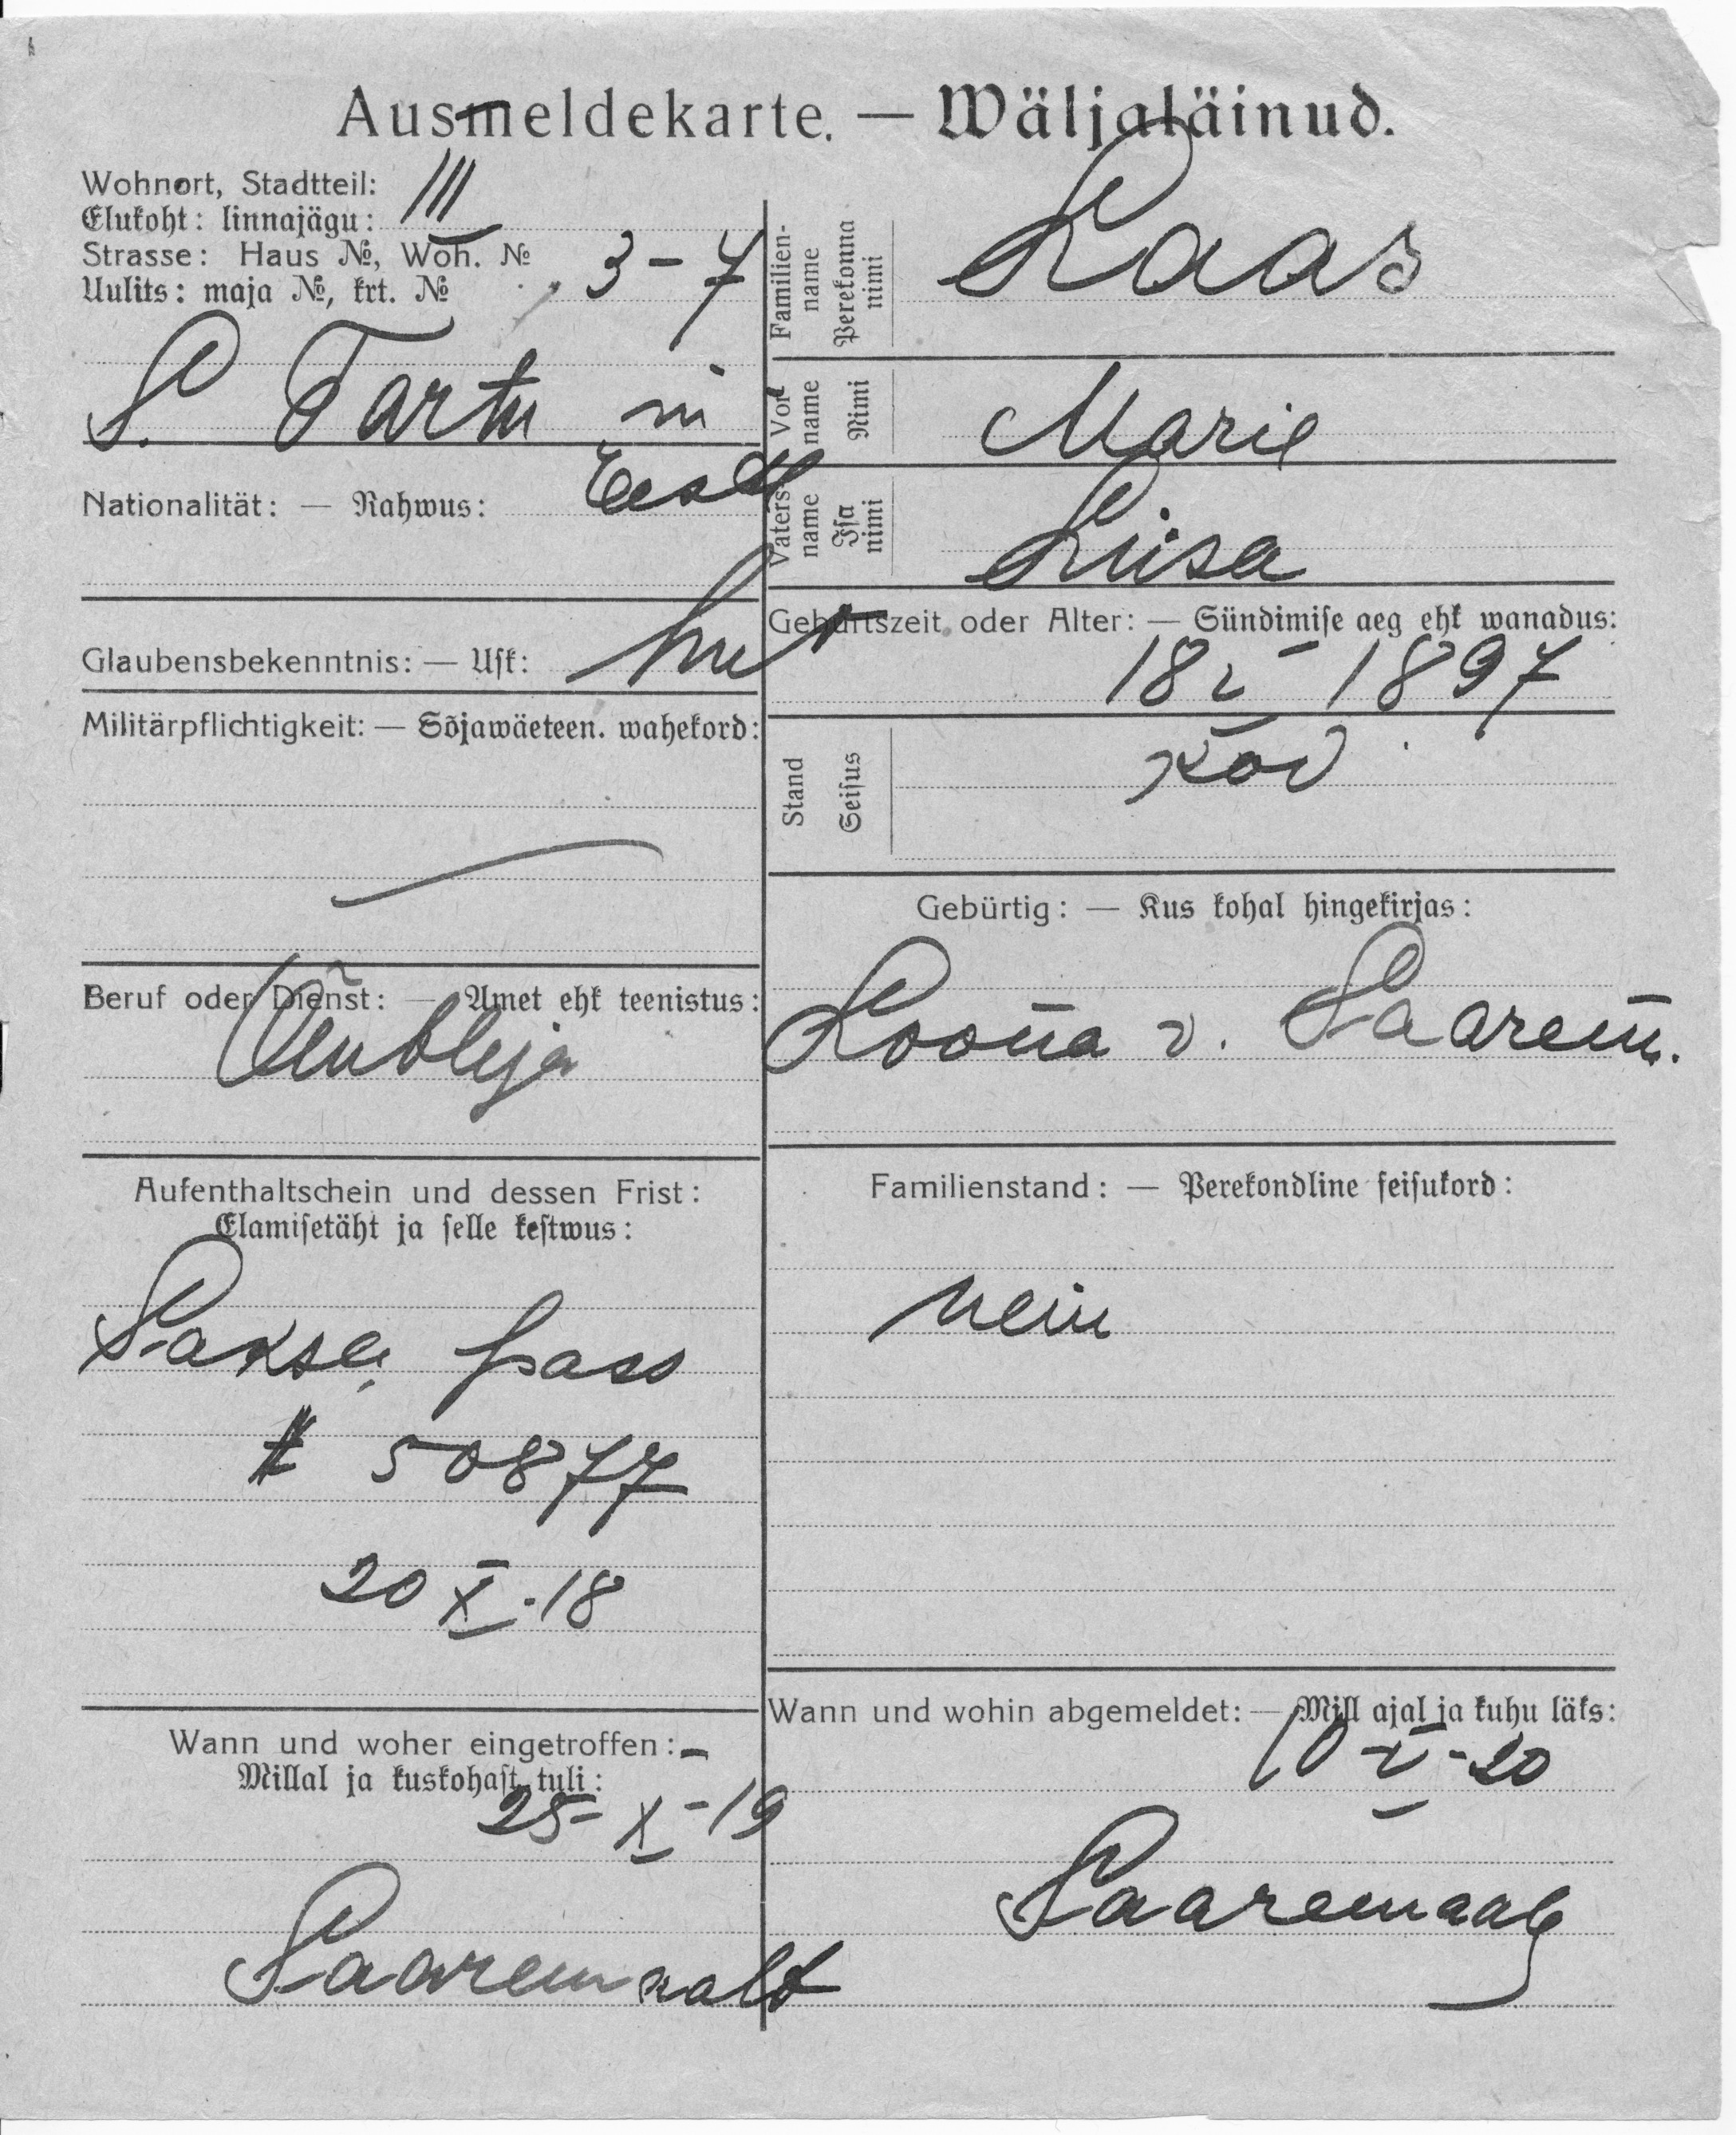 Ausmeldekarte. — Wäljaläinud.
Wohnort, Stadtteil: III
Elukoht: linnajägu:
Strasse: Haus №, Woh. №
Uulits: maja №, krt. № 3-7
S. Tartu m
Nationalität: — Rahwus: Eesti
Glaubensbekenntnis: — Usk: lut
Militärpflichtigkeit: — Sõjawäeteen. wahekord:
Beruf oder Dienst: — Amet ehk teenistus:
Õmbleja
Aufenthaltschein und dessen Frist:
Elamisetäht ja selle kestwus:
Saksa pass
# 50877
20 X. 18
Wann und woher eingetroffen: -
Millal ja kuskohast tuli:
25-X-19
Saaremaalt
Familien-
name
Perekonna
nimi
Laas
Vor
name
Nimi
Marie
Vaters-
name
Isa
nimi
Liisa
Geburtszeit oder Alter: — Sündimise aeg ehk wanadus:
18 V 1897
Stand
Seisus
kod
Gebürtig: — Kus kohal hingekirjas:
Loona v. Saarem.
Familienstand: — Perekondline seisukord:
nein
Wann und wohin abgemeldet: — Mill ajal ja kuhu läks:
10-V-20
Saaremaale